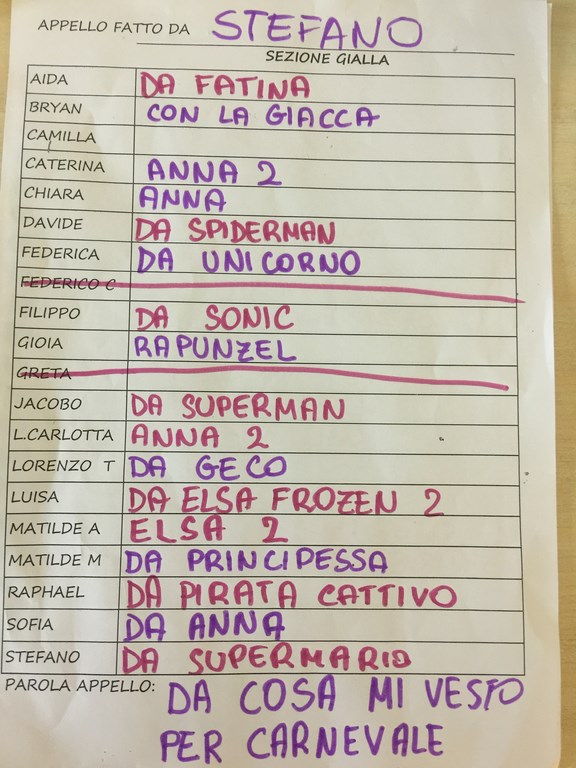 APPELLO FATTO DA STEFANO
SEZIONE GIALLA
AIDA DA FATINA
BRYAN CON LA GIACCA
CAMILLA
CATERINA ANNA 2
CHIARA ANNA
DAVIDE DA SPIDERMAN
FEDERICA DA UNICORNO
FEDERICO C
FILIPPO DA SONIC
GIOIA RAPUNZEL
GRETA
JACOBO DA SUPERMAN
L.CARLOTTA ANNA 2
LORENZO T DA GECO
LUISA DA ELSA FROZEN 2
MATILDE A ELSA 2
MATILDE M DA PRINCIPESSA
RAPHAEL DA PIRATA CATTIVO
SOFIA DA ANNA
STEFANO DA SUPERMARIO
PAROLA APPELLO: DA COSA MI VESTO
PER CARNEVALE